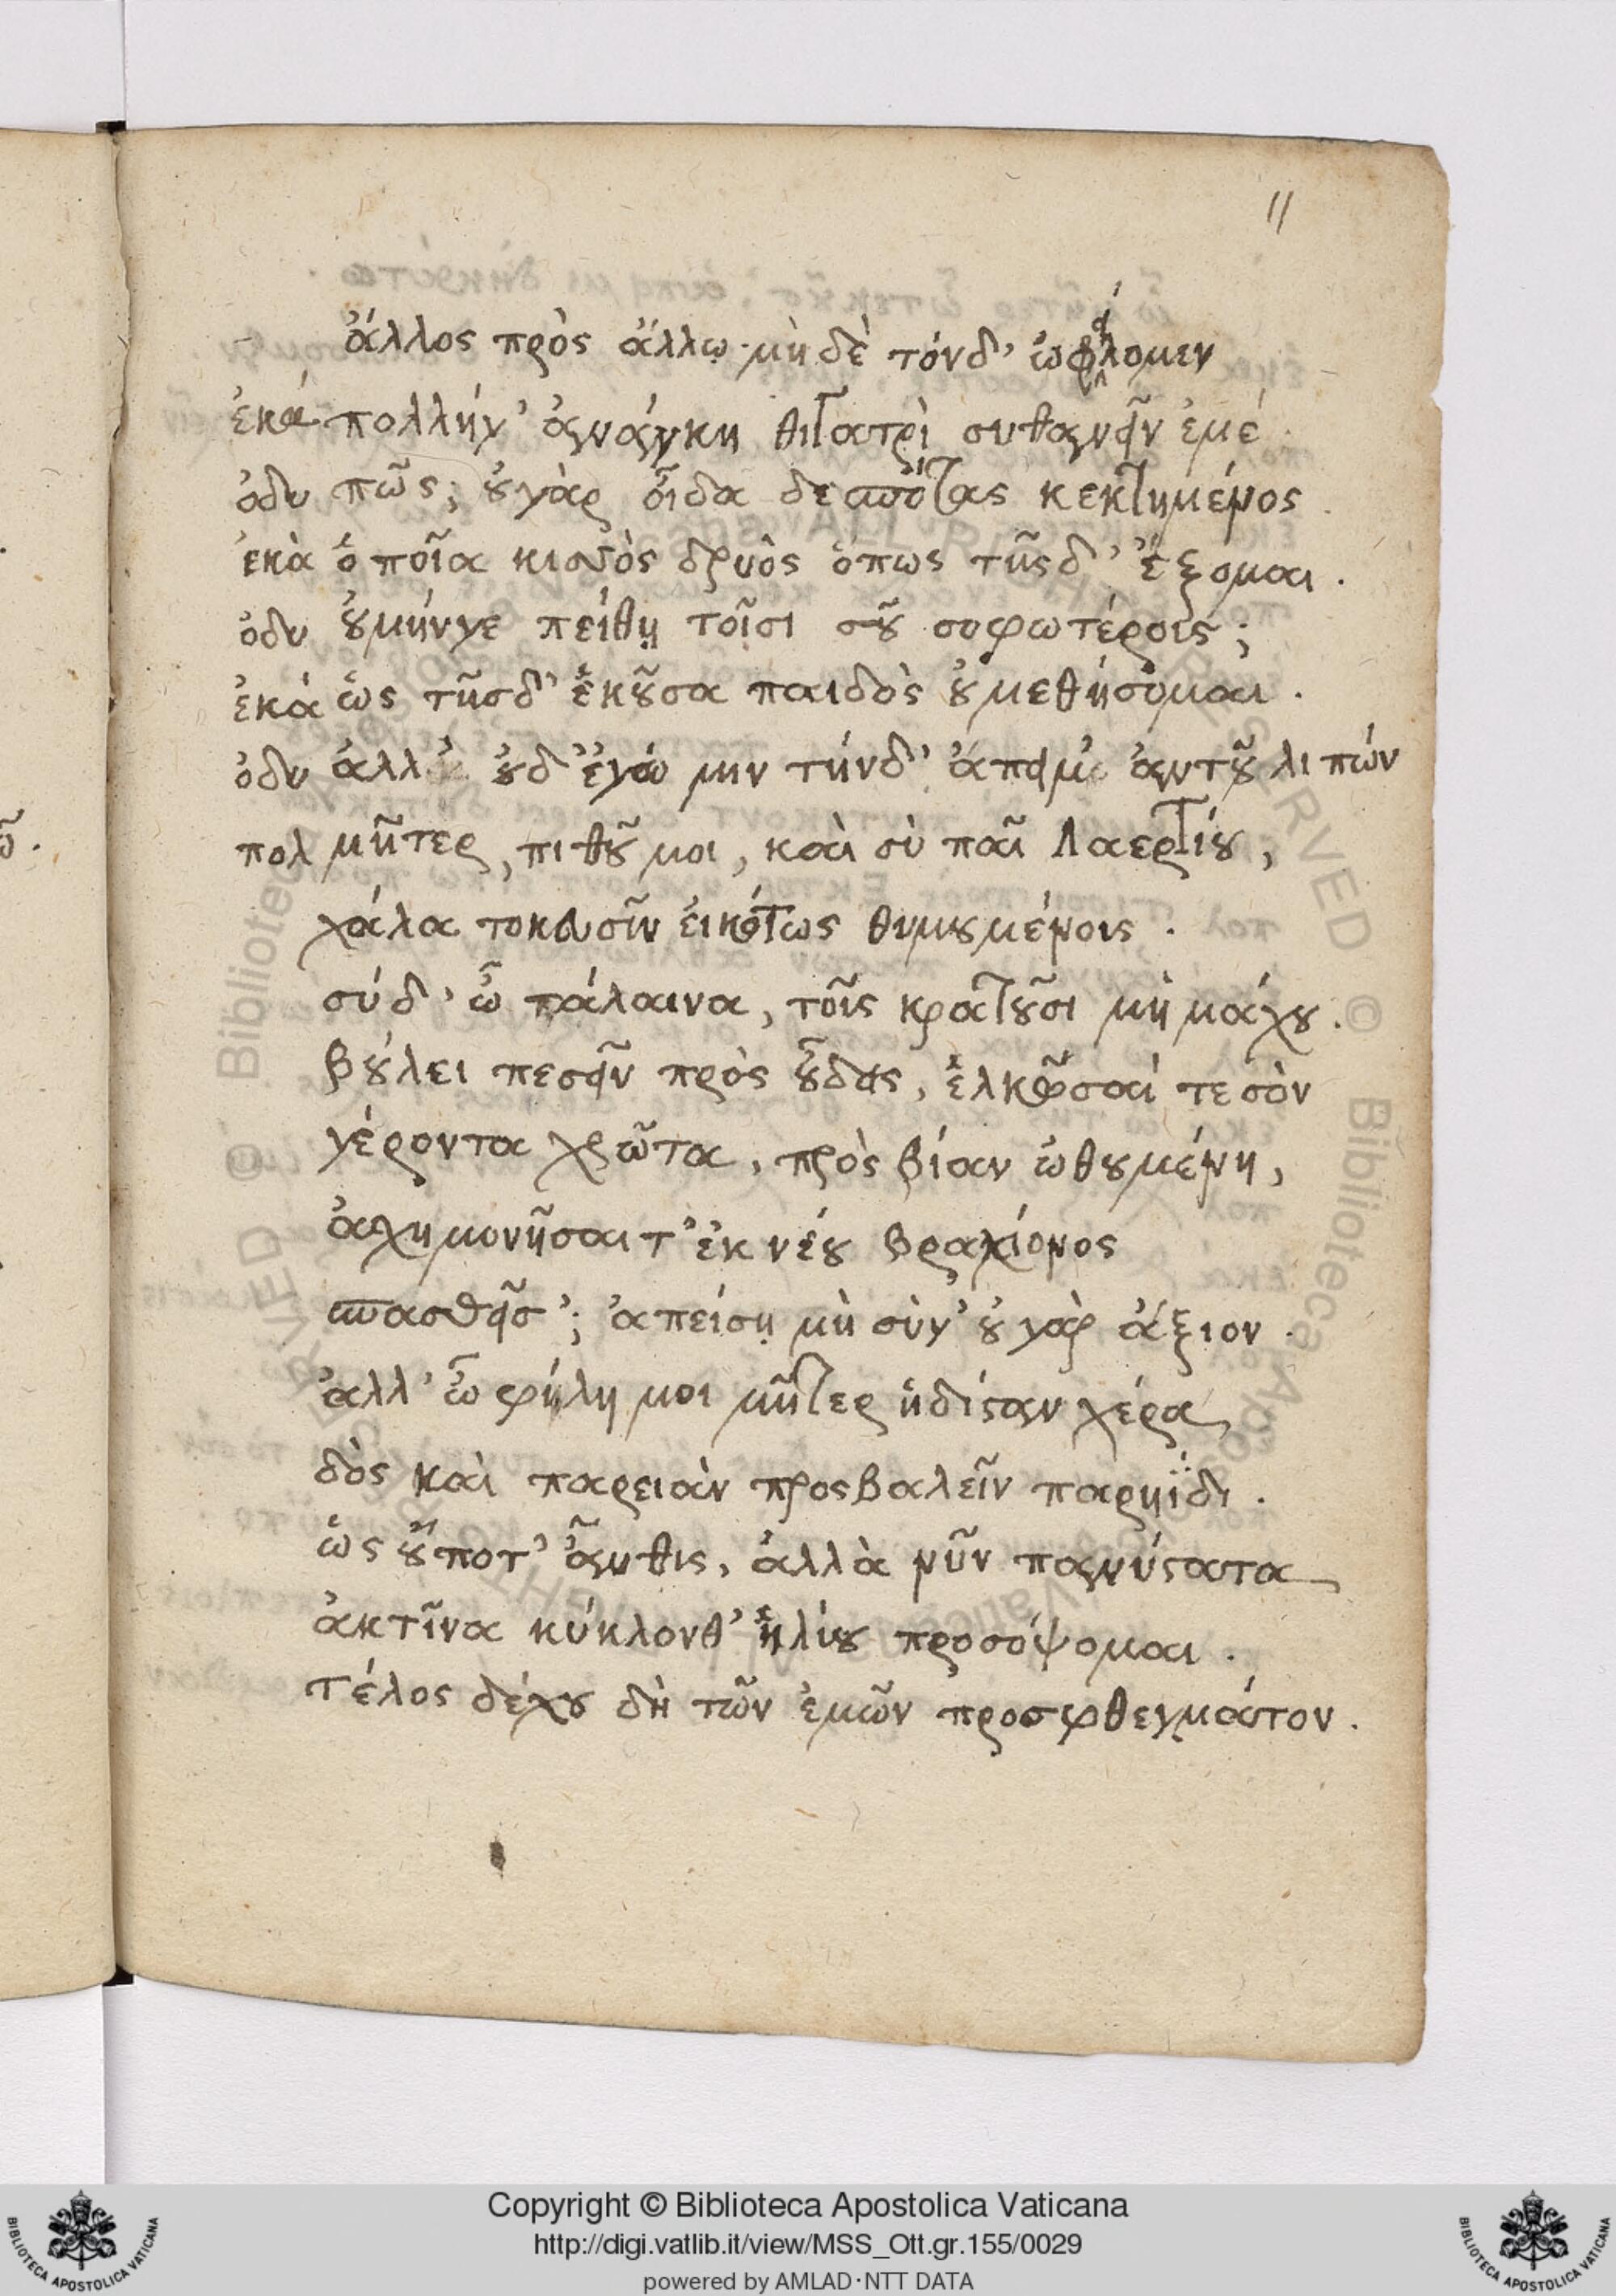 11
ἄλλος πρὸς ἄλλῳ· μὴ δὲ τόνδ' ὠφείλομεν
ἑκά πολλήγ' ἀνάγκη θυγατρὶ συνθανεῖν ἐμέ.
ὀδυ πῶς; ȣ̓ γὰρ οἶδα δεσπότας κεκτημένος.
ἑκὰ ὁποῖα κισσὸς δρυὸς ὅπως τῆςδ' ἕξομαι.
ὀδυ ȣ̓ μήνγε πείθῃ τοῖσι σȣ͂ σοφωτέροις;
ἑκά ὡς τῆσδ' ἑκȣ͂σα παιδὸς ȣ̓ μεθήσομαι.
ὀδυ ἀλλ' ȣ̓δ' ἐγὼ μην τήνδ' ἄπειμ' ἀυτȣ͂ λιπών
πολ μῆτερ, πιθȣ͂ μοι, καὶ σὺ παῖ Λαερτίȣ,
χάλα τοκεῦσιν εἰκότως θυμȣμένοις.
σύ δ' ὦ τάλαινα, τοῖς κρατȣ͂σι μὴ μάχȣ.
βȣ́λει πεσεῖν πρὸς ȣ͂̓δας, ἑλκῶσαί τε σὸν
γέροντα χρῶτα, πρὸς βίαν ὠθȣμένη,
ἀσχημονῆσαι τ' ἐκ νέȣ βραχίονος
σπασθεῖσ'; ἃ πείσῃ μὴ σύγ' ȣ̓ γὰρ ἄξιον.
ἀλλ' ὦ φήλη μοι μῆτερ ἡδίσταν χέρα
δὸς καὶ παρειὰν προςβαλεῖν παρηΐδι.
ὡς ȣ̓́ποτ' ἆυθις, ἀλλὰ νῦν πανύστατα
ἀκτῖνα κύκλονθ' ἡλίȣ προσόψομαι.
τέλος δέχȣ δὴ τῶν ἐμῶν προσφθεγμάτον.
Copyright © Biblioteca Apostolica Vaticana
http://digi.vatlib.it/view/MSS_Ott.gr.155/0029
powered by AMLAD·NTT DATA